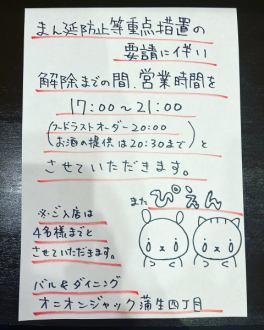 まん延防止等重点措置の
要請に伴い
解除までの間、営業時間を
17:00～21:00
(フードラストオーダー20:00
お酒の提供は20:30まで)と
させていただきます。
また
ぴえん
※ご入店は
4名様までと
させていただきます。
バル&ダイニング
オニオンジャック蒲生四丁目